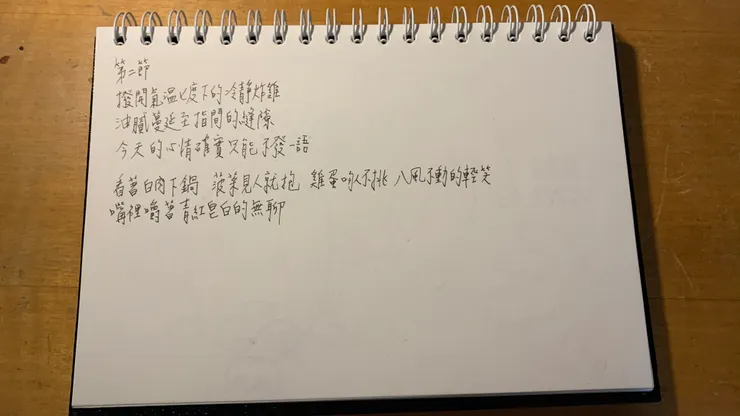 第二節
撥開氣溫七度下的冷靜炸雞
油膩蔓延至指間的縫隙
今天的心情確實只能不發一語
看著白肉下鍋 菠菜見人就抱 雞蛋吻人不挑 八風不動的輕笑
嘴裡嚼著青紅皂白的無聊